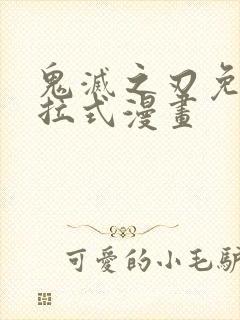 鬼滅之刃免
拉式漫畫
可愛的小毛驢